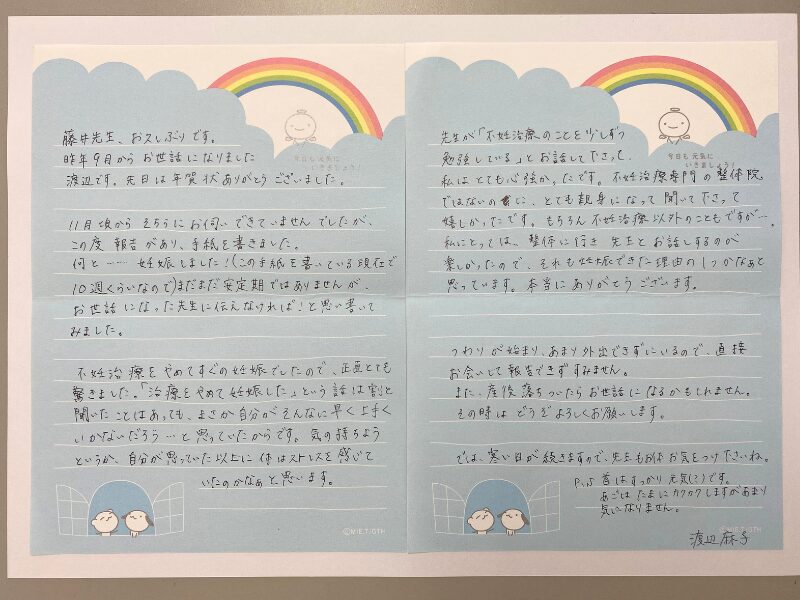 今日も元気に
いきましょう！
藤井先生、お久しぶりです。
昨年9月からお世話になりました
渡辺です。先日は年賀状ありがとうございました。
11月頃からそちらにお伺いできていませんでしたが、
この度 報告があり、手紙を書きました。
何と…… 妊娠しました！(この手紙を書いている現在で
10週くらいなので)まだまだ安定期ではありませんが、
お世話になった先生に伝えなければ！と思い書いて
みました。
不妊治療をやめてすぐの妊娠でしたので、正直とても
驚きました。「治療をやめて妊娠した」という話は割と
聞いたことはあっても、まさか自分がそんなに早く上手く
いかないだろう…と思っていたからです。気の持ちよう
というか、自分が思っていた以上に体はストレスを感じて
いたのかなぁと思います。
©MIE.T・GTH
今日も元気に
いきましょう！
先生が「不妊治療のことを少しずつ
勉強している」とお話して下さって、
私はとても心強かったです。不妊治療専門の整体院
ではないのに、とても親身になって聞いて下さって
嬉しかったです。もちろん不妊治療以外のこともですが…。
私にとっては、整体に行き 先生とお話しするのが
楽しかったので、それも妊娠できた理由の1つかなぁと
思っています。本当にありがとうございます。
つわりが始まり、あまり外出できずにいるので、直接
お会いして報告できずすみません。
また、産後落ちついたらお世話になるかもしれません。
その時は どうぞよろしくお願いします。
では、寒い日が続きますので、先生もお体お気をつけ下さいね。
P.S 首はすっかり元気(？)です。
あごはたまにカクカクしますがあまり
気になりません。
©MIE.T・GTH
渡辺 麻子